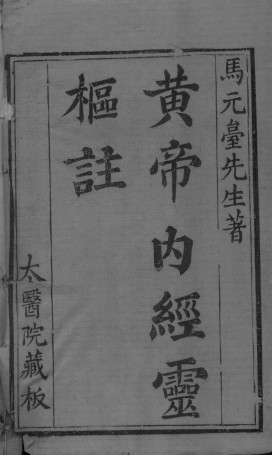 馬元臺先生著
黄帝内經靈
樞註
太醫院藏板